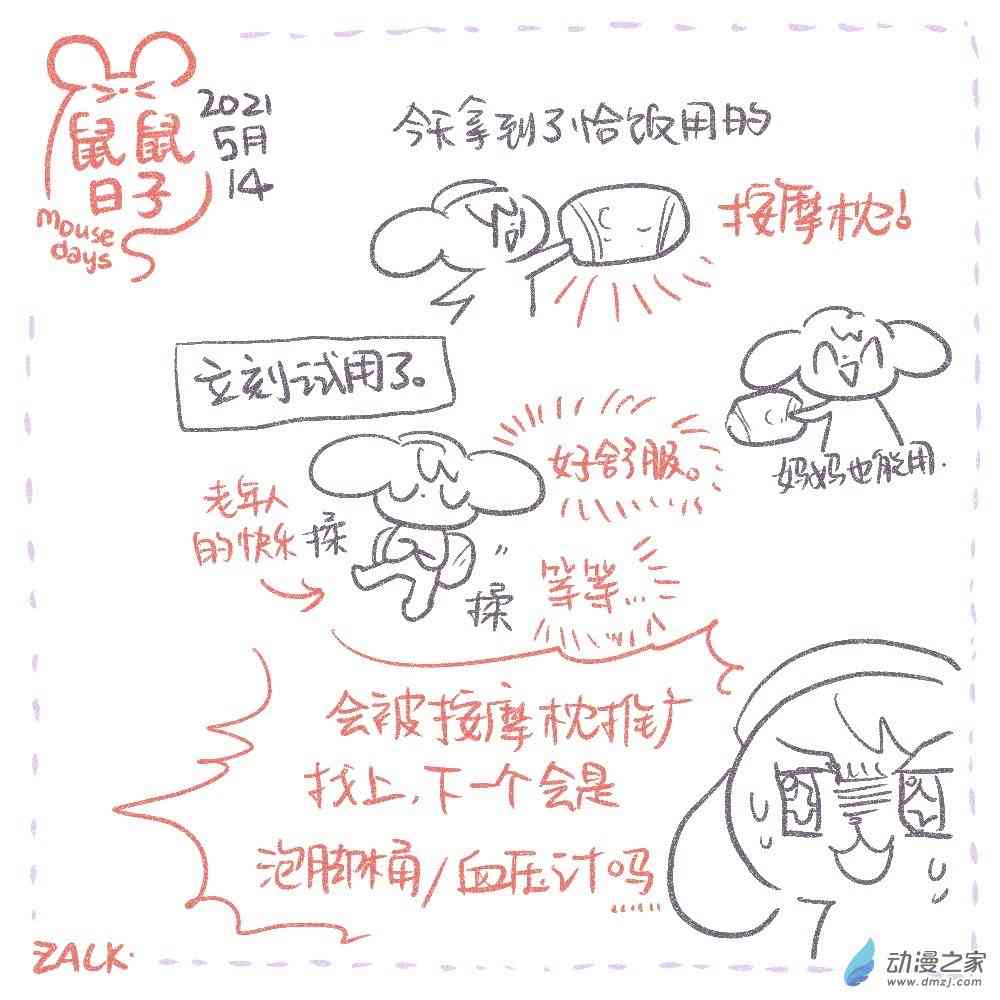 鼠鼠
日子
mouse
days
2021
5月
14
今天拿到了恰饭用的
按摩枕!
立刻试用了。
妈妈也能用.
好舒服。
老年人
的快乐
揉
揉
等等...
会被按摩枕推广
找上,下一个会是
泡脚桶/血压计吗
囧 囧
ZALK.
动漫之家
www.dmzj.com